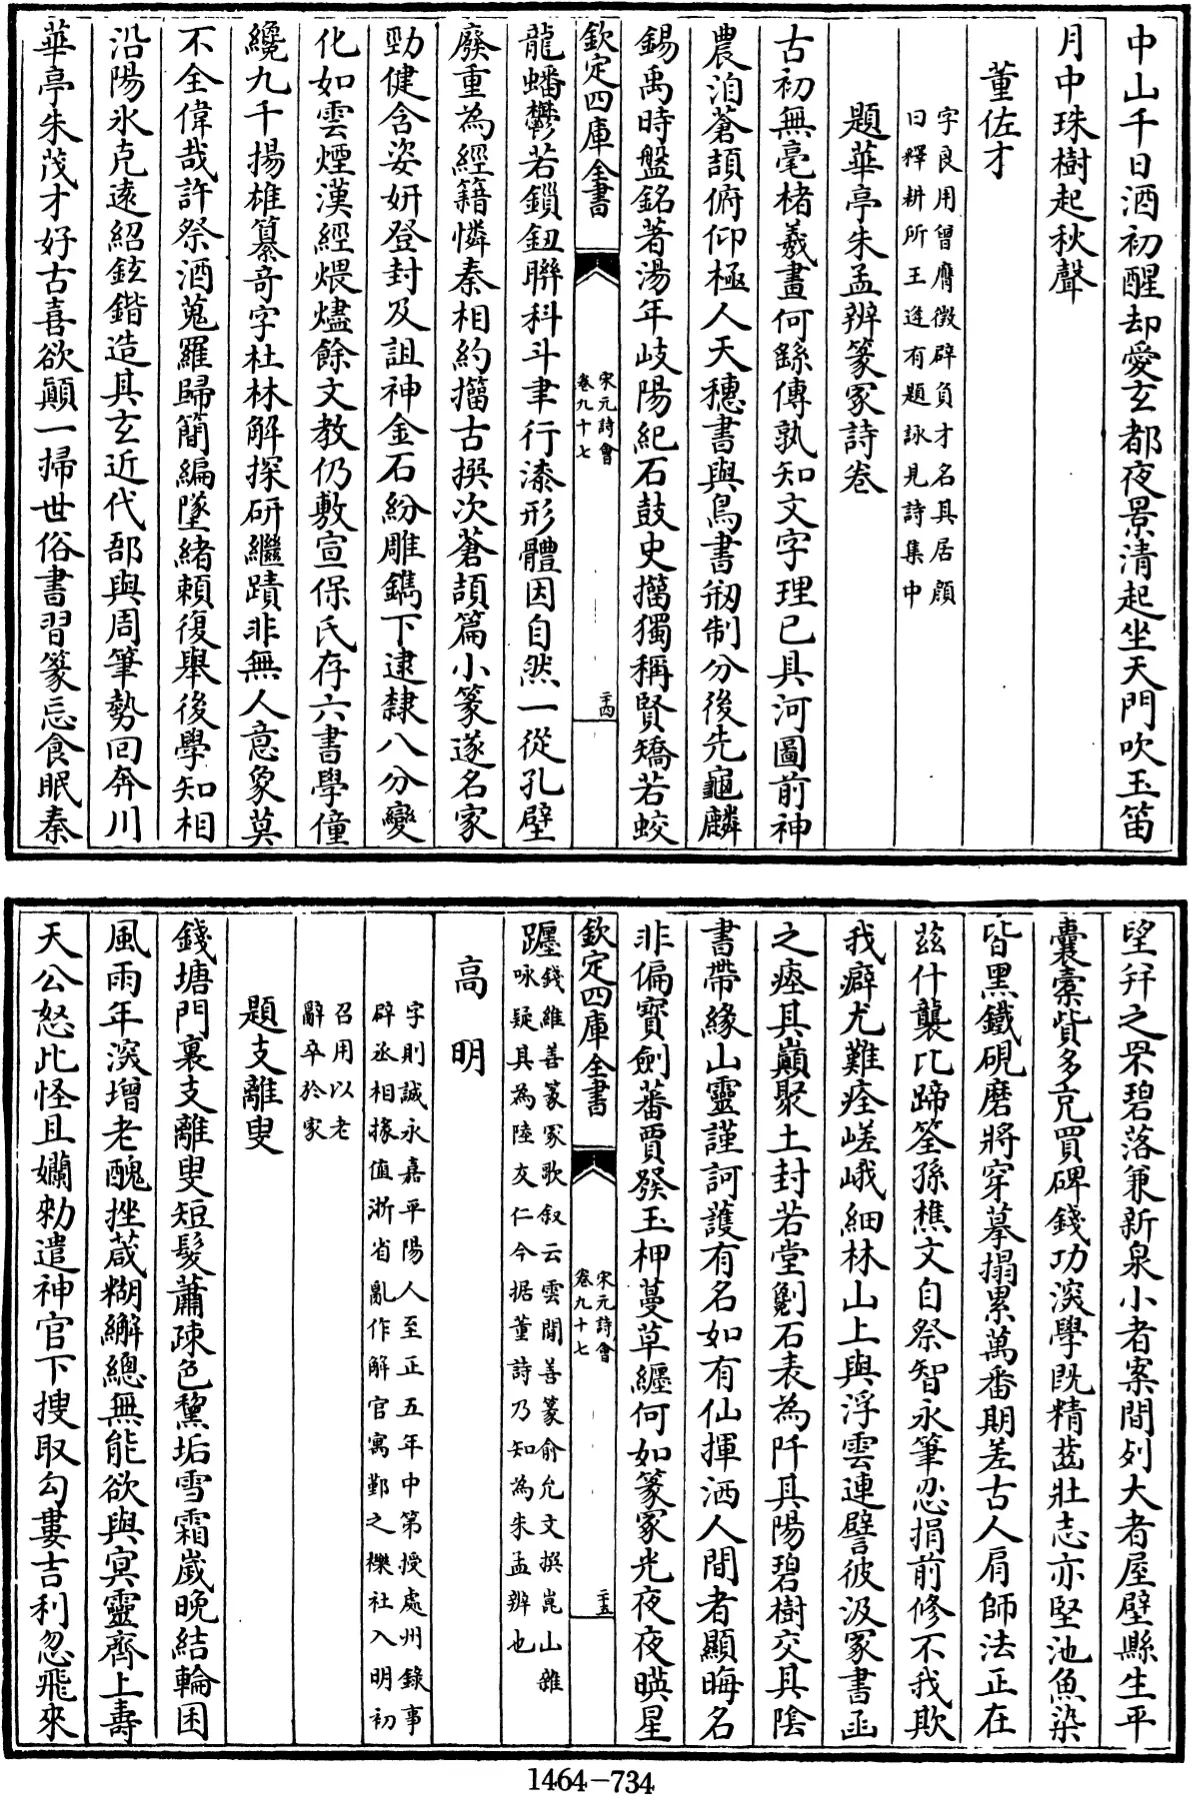 中山千日酒初醒却愛玄都夜景清起坐天門吹玉笛
月中珠樹起秋聲
董佐才
字良用曾膺徵辟負才名其居顔
曰釋耕所王逢有題詠見詩集中
題華亭朱孟辨篆冢詩卷
古初無毫楮羲畫何繇傳孰知文字理已具河圖前神
農洎蒼頡俯仰極人天穗書與鳥書刱制分後先龜麟
錫禹時盤銘著湯年岐陽紀石鼓史籀獨稱賢矯若蛟
欽定四庫全書
宋元詩會
卷九十七
二十四
龍蟠鬱若鎖鈕聯科斗聿行漆形體因自然一從孔壁
廢重為經籍憐秦相約籀古撰次蒼頡篇小篆遂名家
勁健含姿妍登封及詛神金石紛雕鐫下逮隸八分變
化如雲煙漢經煨燼餘文教仍敷宣保氏存六書學僮
纔九千揚雄纂奇字杜林解探研繼蹟非無人意象莫
不全偉哉許祭酒蒐羅歸簡編墜緒賴復舉後學知相
沿陽氷克遠紹鉉鍇造其玄近代部與周筆勢回奔川
華亭朱茂才好古喜欲顛一掃世俗書習篆忘食眠秦
望并之罘碧落兼新泉小者案間列大者屋壁縣生平
囊橐貲多充買碑錢功深學既精齒壯志亦堅池魚染
皆黑鐵硯磨將穿摹搨累萬番期差古人肩師法正在
茲什襲比蹄筌孫樵文自祭智永筆忍捐前修不我欺
我癖尤難痊嵯峨細林山上與浮雲連譬彼汲冢書函
之瘞其巔聚土封若堂劖石表為阡其陽碧樹交其陰
書帶緣山靈謹訶護有名如有仙揮洒人間者顯晦名
非偏寶劍蕃賈發玉柙蔓草纏何如篆冢光夜夜暎星
欽定四庫全書
宋元詩會
卷九十七
二十五
躔
錢維善篆冢歌叙云雲間善篆俞允文撰崑山雜
咏疑其為陸友仁今据董詩乃知為朱孟辨也
高明
字則誠永嘉平陽人至正五年中第授處州錄事
辟丞相掾值浙省亂作解官寓鄞之櫟社入明初
召用以老
辭卒於家
題支離叟
錢塘門裏支離叟短髮蕭疎色黧垢雪霜嵗晚結輪囷
風雨年深增老醜挫葴糊繲總無能欲與㝠靈齊上壽
天公怒此怪且嬾勅遣神官下搜取勾婁吉利忽飛來
1464-734